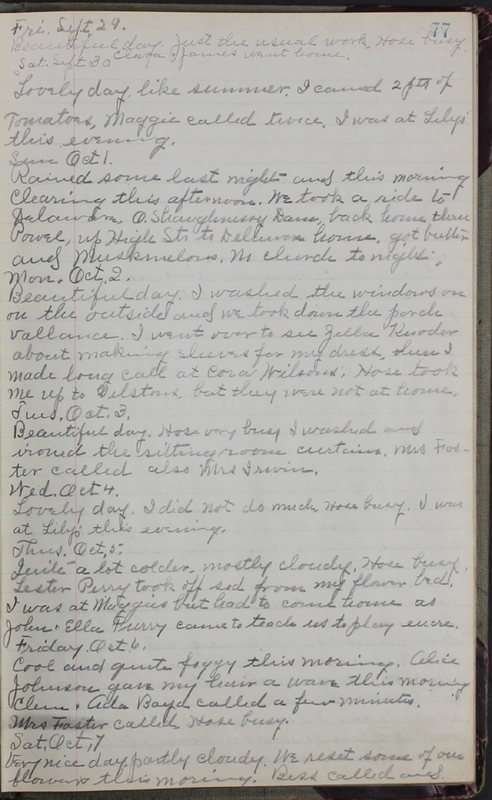 77
Fri. Sept. 29.
Beautiful day. Just the usual work, Hose busy.
Sat. Sept 30 Clara & James went home.
Lovely day, like summer. I caned 2 pts of
Tomatoes, Maggie called twice. I was at Lily's
this evening.
Sun Oct 1.
Rained some last night and this morning
Clearing this afternoon. We took a ride to
Delaware, O. Shaughnessy Dam, back home thru
Powel, up High Str to Delaware home, got butter
and Muskmelons. No church to night.
Mon. Oct, 2.
Beautiful day. I washed the windows on
on the outside and we took down the porch
vallance. I went over to see Zella Kooder
about making sleeves for my dress, then I
made long call at Cora Wilsons. Hose took
me up to Gelstons, but they were not at home.
Tues. Oct. 3.
Beautiful day. Hose very busy I washed and
ironed the sitting room curtains. Mrs Fos-
ter called also Mrs Irwin.
Wed. Oct 4.
Lovely day. I did not do much Hose busy. I was
at Lilys this evening.
Thus. Oct, 5.
Quite a lot colder. mostly cloudy. Hose busy.
Lester Perry took off sod from my flower bed.
I was at Maggies but had to come home as
John & Ella Purry came to teach us to play eucre.
Friday. Oct 6.
Cool and quite foggy this morning. Alice
Johnson gave my hair a wave this morning
Clem & Ada Boyd called a few minutes.
Mrs Foster called Hose busy.
Sat, Oct, 7
Very nice day partly cloudy. We reset some of our
flowers this morning. Bess called and